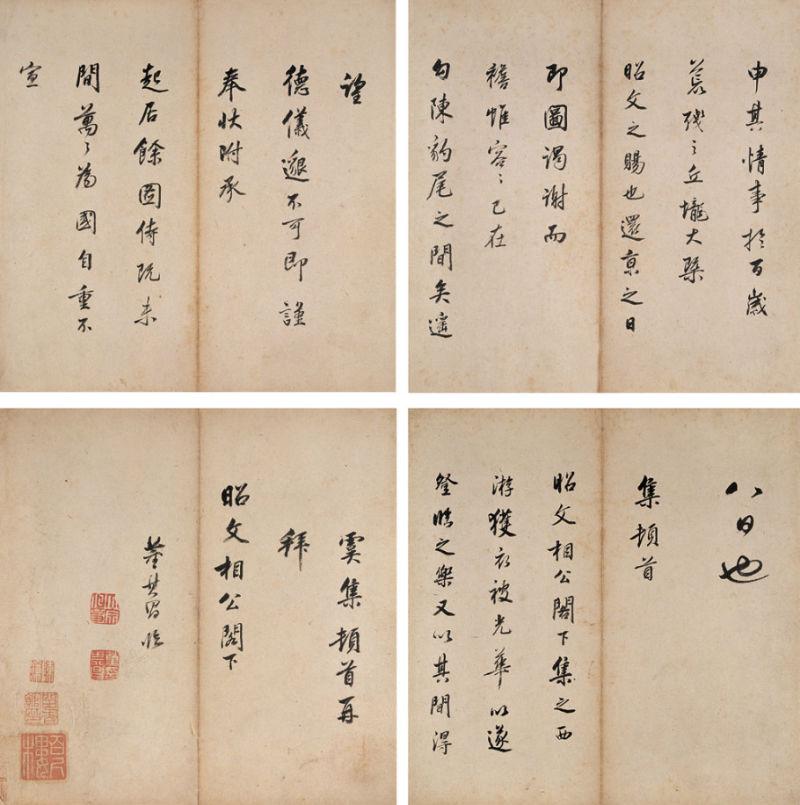 八日也
集頓首
昭文相公閣下集之西
游獲衣被光華以遂
登臨之樂又以其間得
申其情事於百歲
殘之丘壠大槩
昭文之賜也還京之日
即圖謁謝而
襜帷容〻已在
勾陳豹尾之間矣遙
望
德儀邈不可即謹
奉狀附承
起居餘圖侍未
間萬〻為國自重不
宣
虞集頓首再
拜
昭文相公閣下
董其昌臨